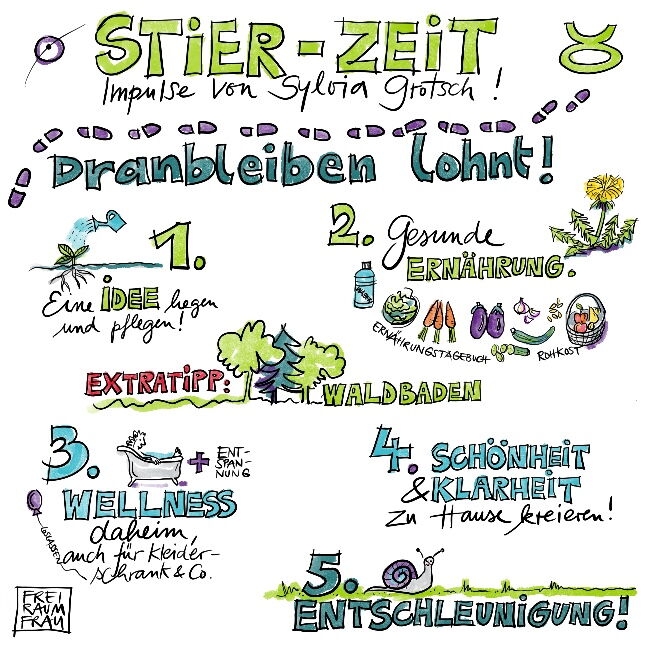 STiER-ZEiT
Impulse von Sylvia Grotsch!
Dranbleiben lohnt!
1.
Eine iDEE hegen
und pflegen!
2. Gesunde
ERNÄHRUNG.
ERNÄHRUNGSTAGEBUCH
ROHKOST
EXTRATiPP:
WALDBADEN
3.
+ ENT-
SPAN-
NUNG
WELLNESS
daheim,
auch für Kleider-
schrank & Co.
4. SCHÖNHEIT
& KLARHEIT
zu Hause kreieren!
5.
ENTSCHLEUNIGUNG!
FREI
RAUM
FRAU